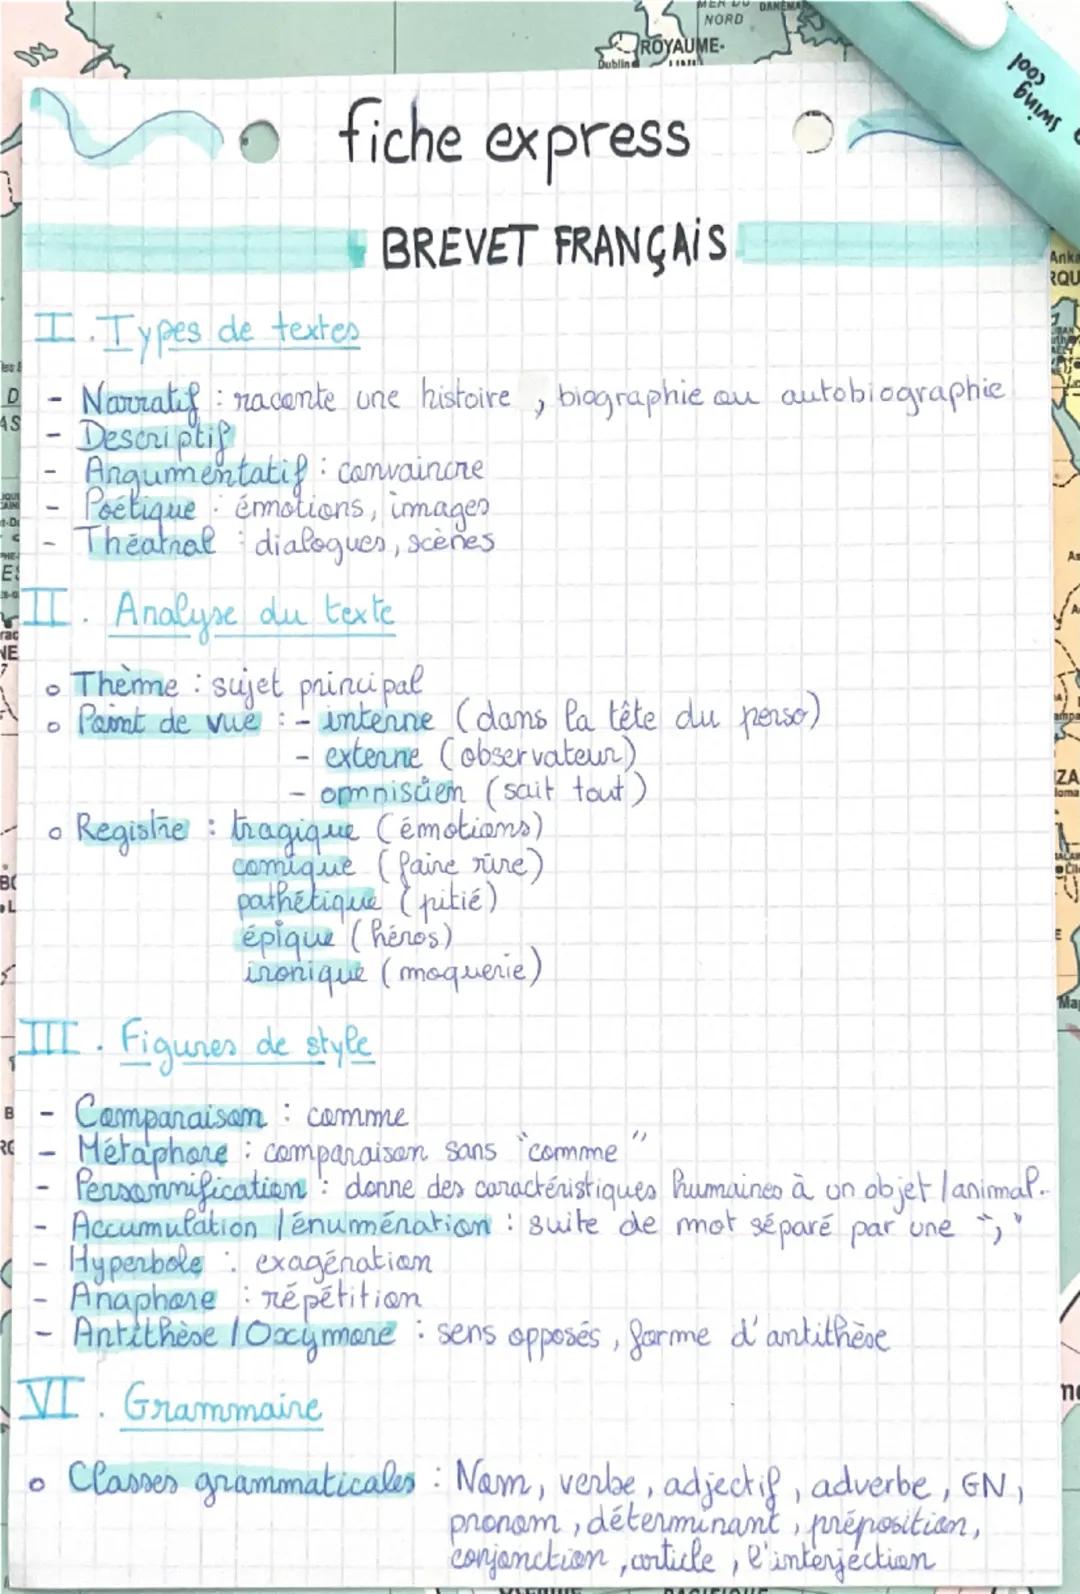 MER DU
NORD
DANEMA
ROYAUME-
Dublin
swing
cool
fiche express
BREVET FRANÇAIS
I. Types de textes
- Narratif : raconte une histoire , biographie ou autobiographie
- Descriptif
- Argumentatif : convaincre
- Poétique : émotions, images
- Théatral : dialogues, scènes
II. Analyse du texte
o Thème : sujet principal
o Point de vue : - interne (dans la tête du perso)
- externe (observateur)
- omniscien (sait tout)
o Registre : tragique (émotions)
comique (faire rire)
pathétique (pitié)
épique (héros)
ironique (moquerie)
III. Figures de style
- Comparaison : comme
- Métaphore : comparaison sans "comme"
- Personnification : donne des caractéristiques humaines à un objet / animal.
- Accumulation / énumération : suite de mot séparé par une ","
- Hyperbole : exagération
- Anaphore : répétition
- Antithèse / Oxymore : sens opposés, forme d'antithèse
VI. Grammaire
o Classes grammaticales : Nom, verbe, adjectif, adverbe, GN,
pronom, déterminant, préposition,
conjonction, article, l'interjection